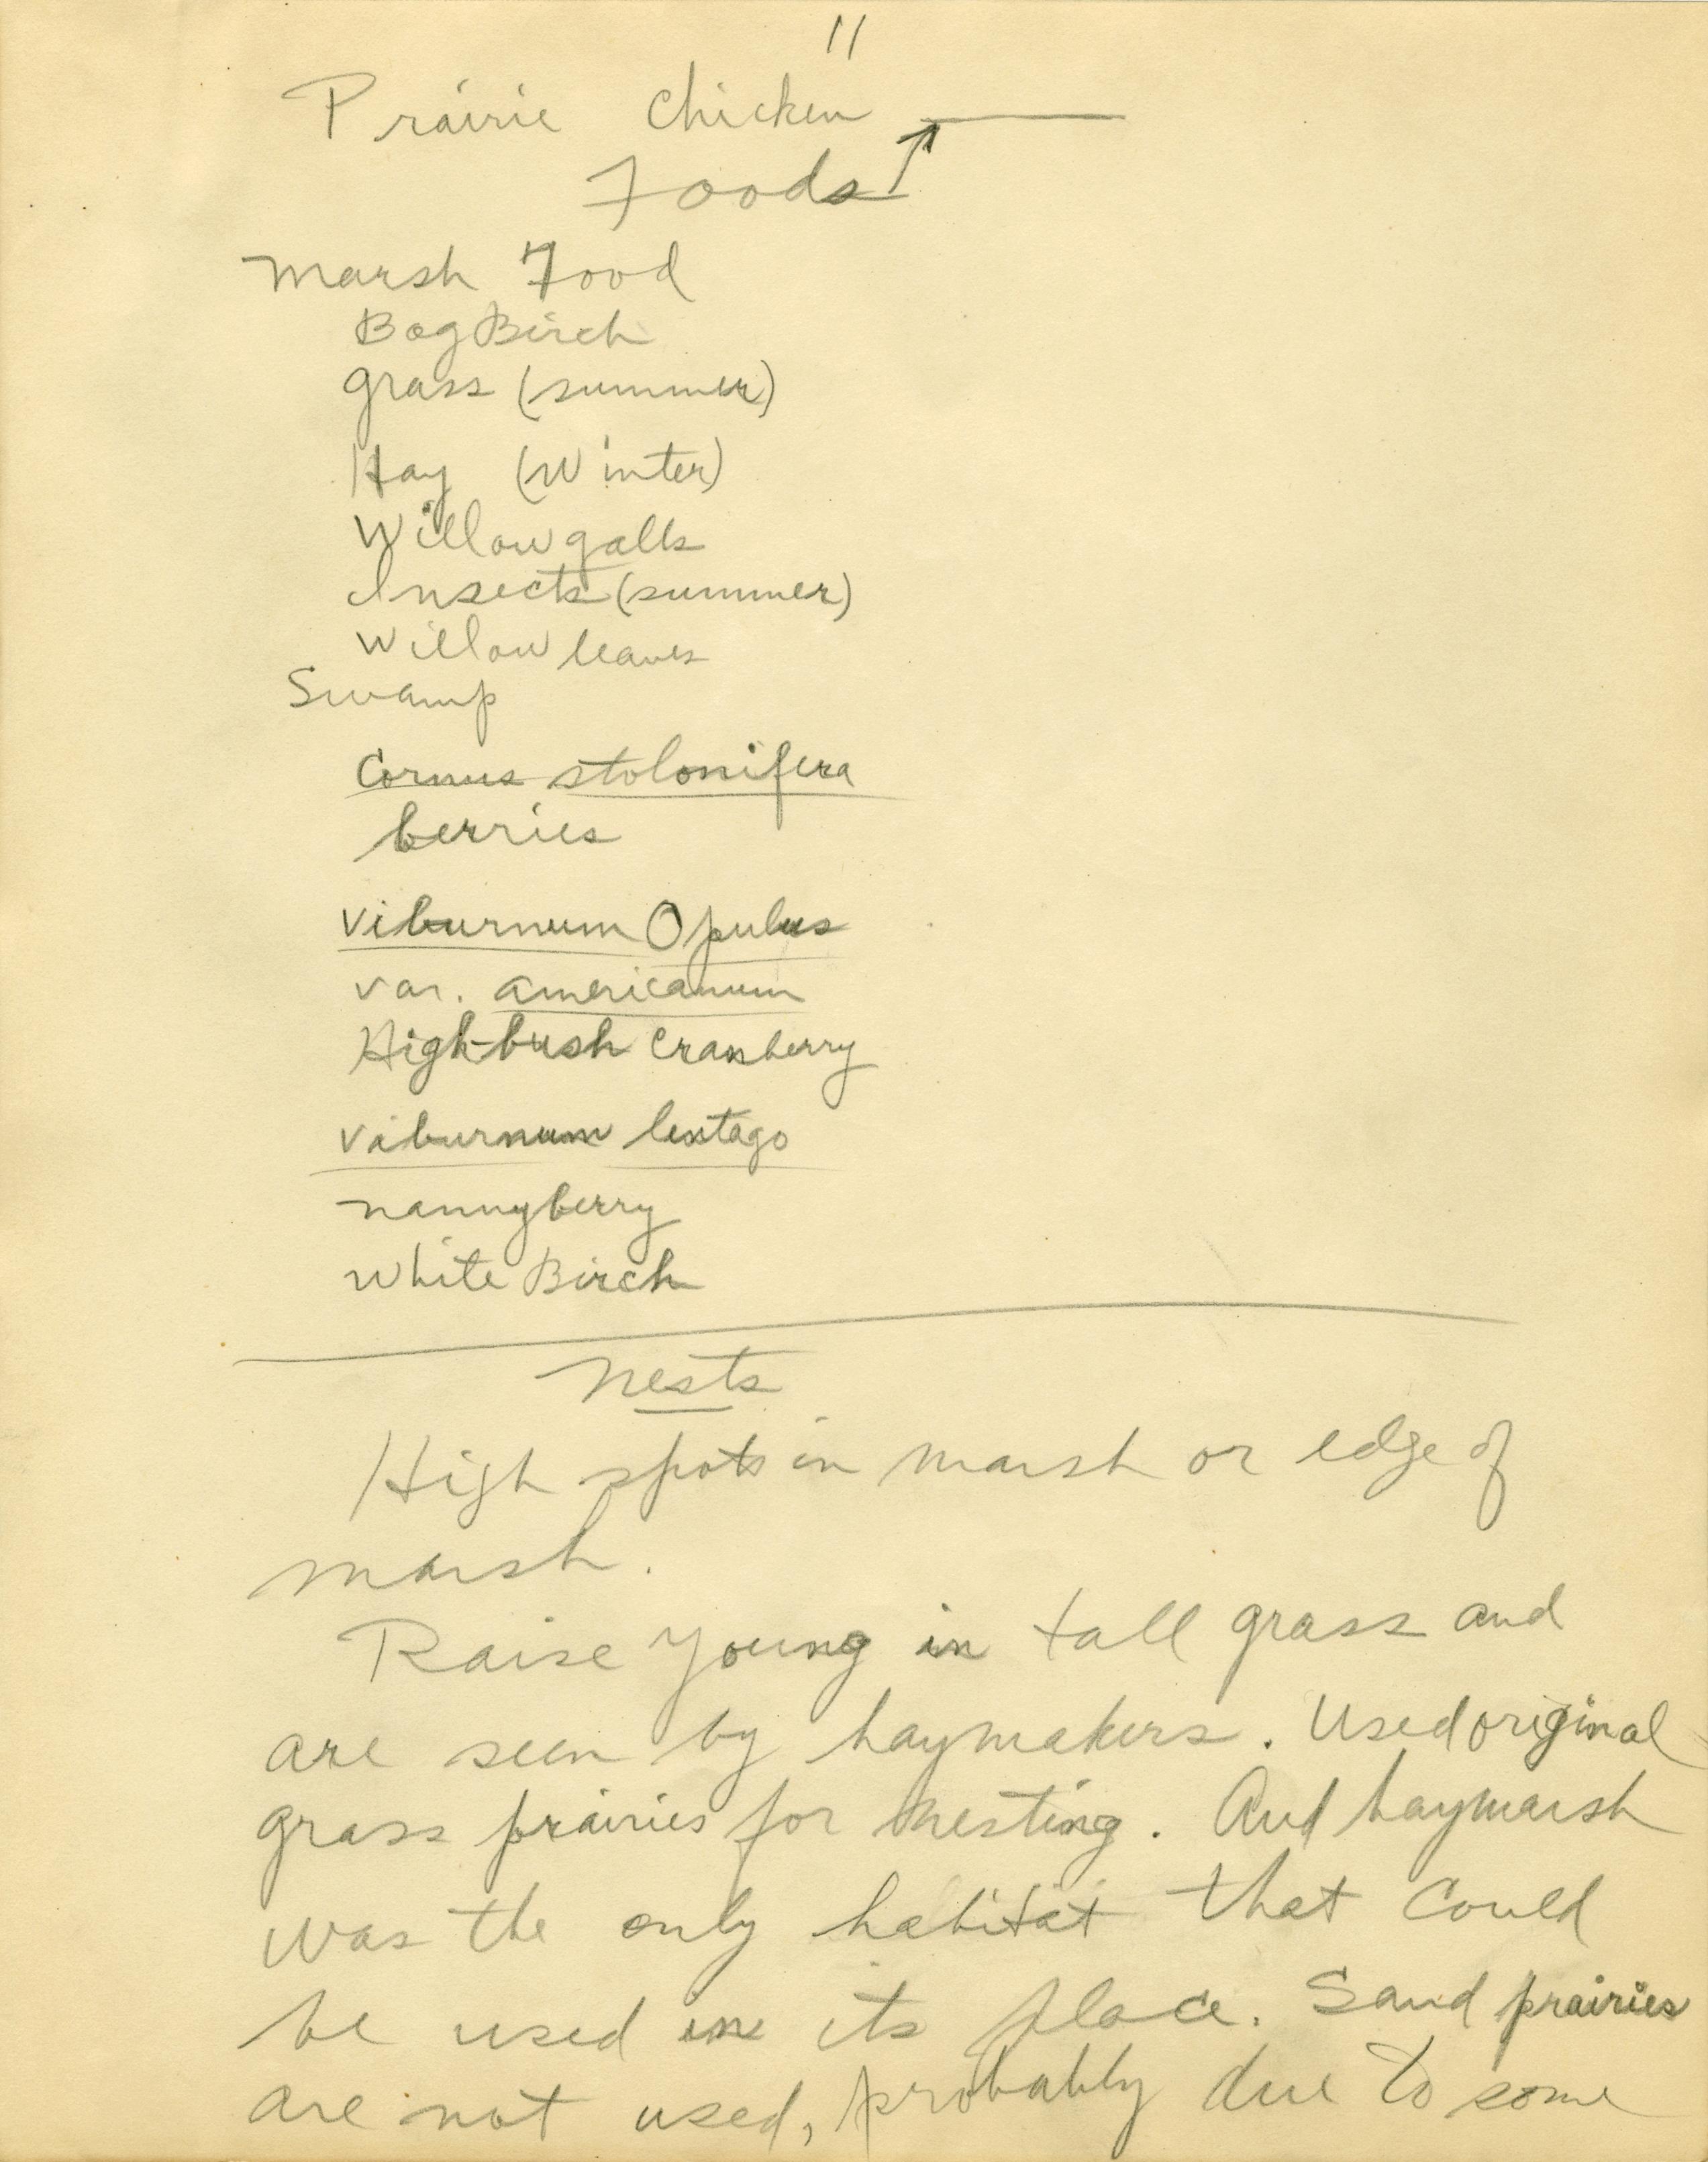 11
Prairie Chicken
Foods
Marsh Food
Bog Birch
grass (summer)
Hay (Winter)
Willow galls
Insects (summer)
Willow leaves
Swamp
Cornus stolonifera
berries
Viburnum Opulus
var. americanum
High-bush Cranberry
Viburnum lentago
nannyberry
White Birch
Nests
High spots in marsh or edge of
marsh.
Raise young in tall grass and
are seen by haymakers. Used original
grass prairies for nesting. And haymarsh
was the only habitat that could
be used in its place. Sand prairies
are not used, probably due to some